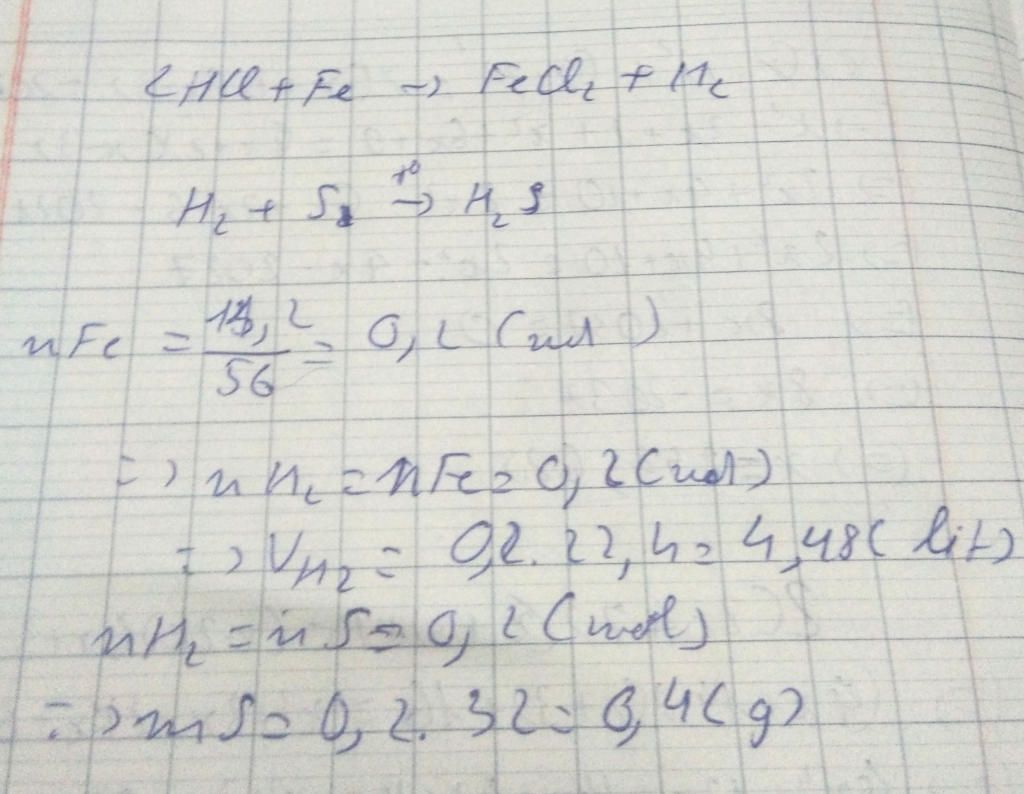 2HCl + Fe → FeCl₂ + H₂
H₂ + S t⁰→ H₂S
nFe = 11,2/56 = 0,2 (mol)
=> nH₂ = nFe = 0,2 (mol)
=> V_H₂ = 0,2 . 22,4 = 4,48 (lit)
nH₂ = nS = 0,2 (mol)
=> mS = 0,2 . 32 = 6,4 (g)